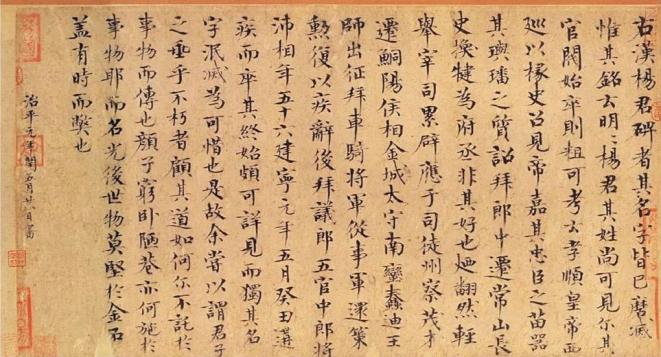 右漢楊君碑者其名字皆已磨滅
惟其銘云明〻楊君其姓尚可見尔其
官閥始卒則粗可考云孝順皇帝西
巡以掾史召見帝嘉其忠臣之苗器
其璵璠之質詔拜郎中遷常山長
史換犍為府丞非其好也迺翻然輕
舉宰司累辟應于司徒州察茂才
遷鮦陽侯相金城太守南蠻蠢迪王
師出征拜車騎將軍從事軍還策
勳復以疾辭後拜議郎五官中郎將
沛相年五十六建寧元年五月癸丑遘
疾而卒其終始頗可詳見而獨其名
字泯滅為可惜也是故余嘗以謂君子
之垂乎不朽者顧其道如何尔不託於
事物而傳也顏子窮卧陋巷亦何施於
事物耶而名光後世物莫堅於金石
盖有時而獘也
治平元年閏五月廿八日書